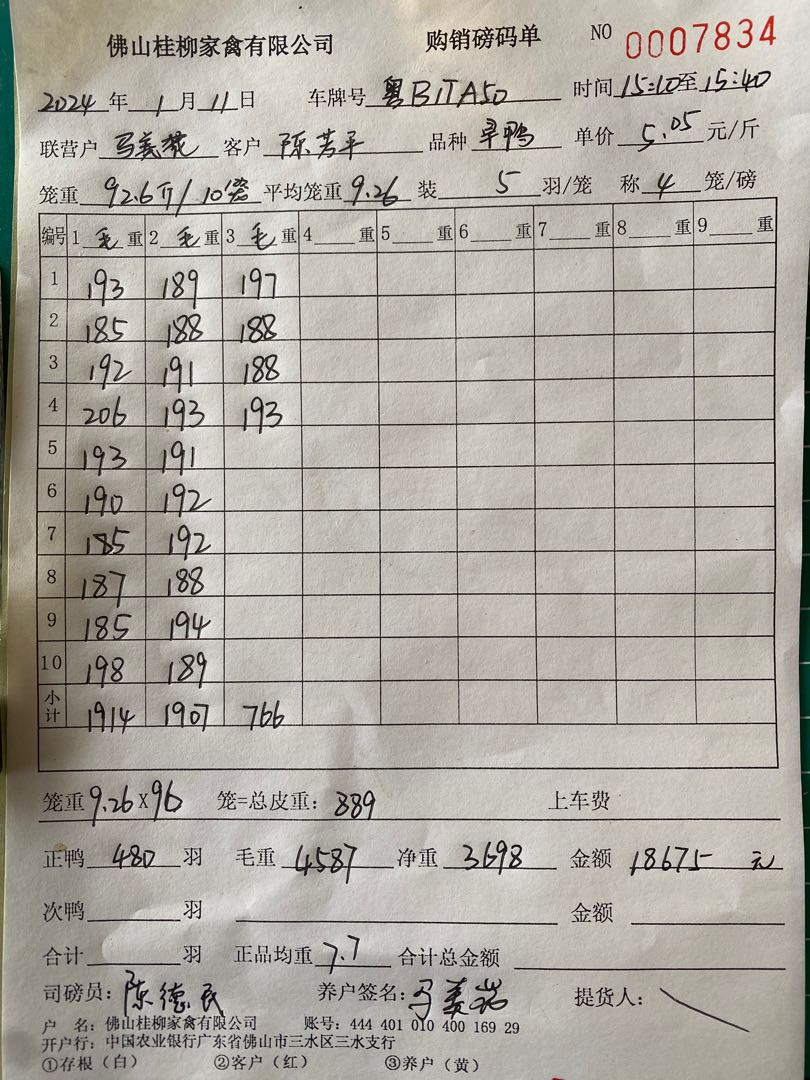 佛山桂柳家禽有限公司 购销磅码单 NO 0007834
2024年1月11日 车牌号 粤B1TA50 时间15:10至15:40
联营户 客户 陈芳平 品种 旱鸭 单价 5.05 元/斤
笼重 92.6斤/10笼 平均笼重 9.26 装 5 羽/笼 称 4 笼/磅
编号 1 毛 重 2 毛 重 3 毛 重 4 重 5 重 6 重 7 重 8 重 9 重
1 193 189 197
2 185 188 188
3 192 191 188
4 206 193 193
5 193 191
6 190 192
7 185 192
8 187 188
9 185 194
10 198 189
小计 1914 1907 766
笼重9.26×96 笼=总皮重: 889 上车费
正鸭 480 羽 毛重 4587 净重 3698 金额 18675 元
次鸭 羽 金额
合计 羽 正品均重 7.7 合计总金额
司磅员: 陈德民 养户签名: 提货人:
户 名: 佛山桂柳家禽有限公司 账号: 444 401 010 400 169 29
开户行: 中国农业银行广东省佛山市三水区三水支行
①存根(白) ②客户(红) ③养户(黄)